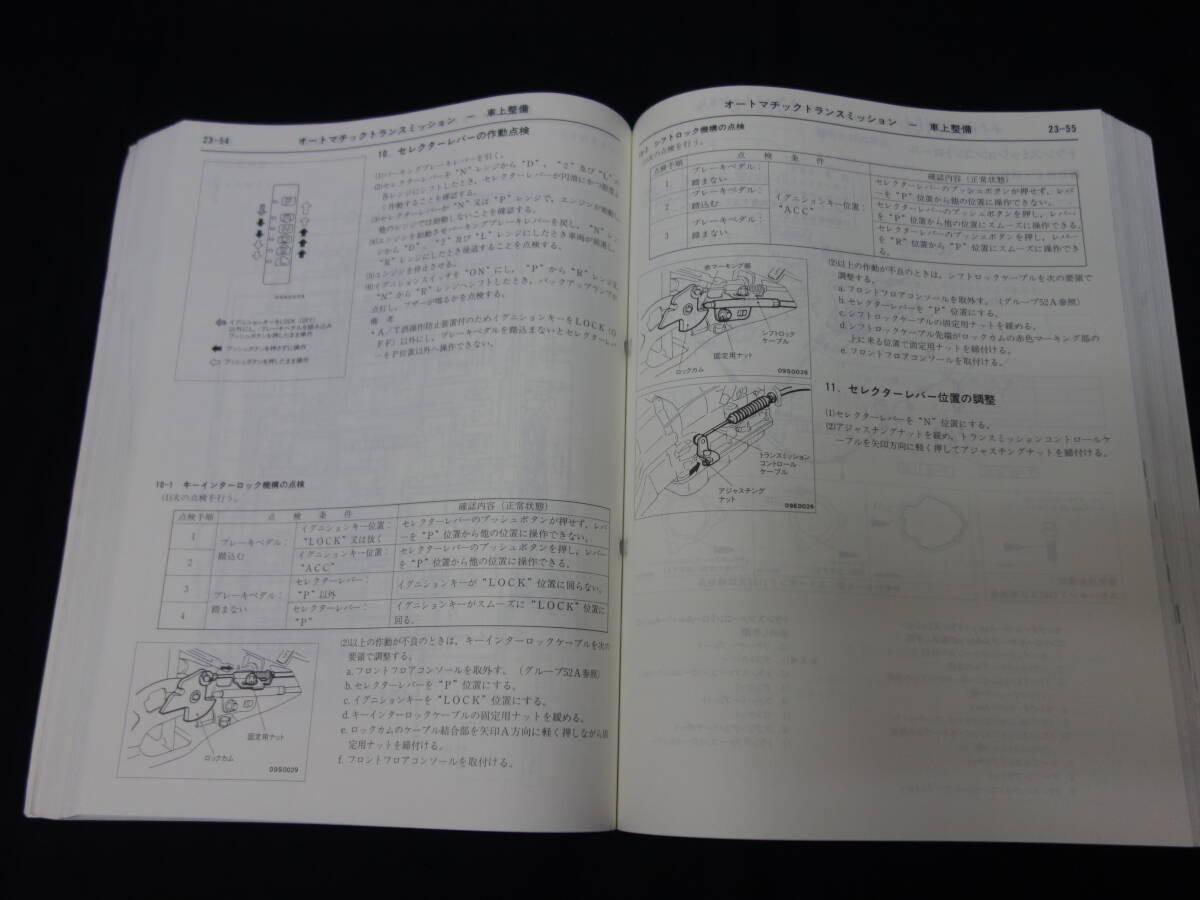 23-54
オートマチックトランスミッション － 車上整備
10. セレクターレバーの作動点検
(1)パーキングブレーキレバーを引く。
(2)セレクターレバーを“N”レンジから“D”，“2”及び“L”の
各レンジにシフトしたとき，セレクターレバーが円滑にかつ節度よ
く作動することを確認する。
(3)セレクターレバーが“N”又は“P”レンジで，エンジンが始動し，
他のレンジでは始動しないことを確認する。
(4)エンジンを始動させパーキングブレーキレバーを戻し，“N”レン
ジから“D”，“2”及び“L”レンジにしたとき車両が前進し，
“R”レンジにしたとき後退することを点検する。
(5)エンジンを停止させる。
(6)イグニションスイッチを“ON”にし，“P”から“R”レンジ又
“N”から“R”レンジへシフトしたとき，バックアップランプが
点灯し，ブザーが鳴るかを点検する。
備 考
・A／T誤操作防止装置付のためイグニションキーをLOCK（O
FF）以外にし，ブレーキペダルを踏込まないとセレクターレバ
ーをP位置以外へ操作できない。
イグニションキーをLOCK（OFF）
以外にし，ブレーキペダルを踏み込み
プッシュボタンを押したまま操作
プッシュボタンを押さずに操作
プッシュボタンを押したまま操作
10-1 キーインターロック機構の点検
(1)次の点検を行う。
点検手順 点 検 条 件 確認内容（正常状態）
1 ブレーキペダル：踏込む イグニションキー位置：“LOCK”又は抜く セレクターレバーのプッシュボタンが押せず，レバーを“P”位置から他の位置に操作できない。
2 イグニションキー位置：“ACC” セレクターレバーのプッシュボタンを押し，レバーを“P”位置から他の位置に操作できる。
3 ブレーキペダル：踏まない セレクターレバー：“P”以外 イグニションキーが“LOCK”位置に回らない。
4 セレクターレバー：“P” イグニションキーがスムーズに“LOCK”位置に回る。
固定用ナット
ロックカム
09S0029
(2)以上の作動が不良のときは，キーインターロックケーブルを次の
要領で調整する。
a.フロントフロアコンソールを取外す。（グループ52A参照）
b.セレクターレバーを“P”位置にする。
c.イグニションキーを“LOCK”位置にする。
d.キーインターロックケーブルの固定用ナットを緩める。
e.ロックカムのケーブル結合部を矢印A方向に軽く押しながら固
定用ナットを締付ける。
f.フロントフロアコンソールを取付ける。
オートマチックトランスミッション － 車上整備
23-55
10-2 シフトロック機構の点検
(1)次の点検を行う。
点検手順 点 検 条 件 確認内容（正常状態）
1 ブレーキペダル：踏まない イグニションキー位置：“ACC” セレクターレバーのプッシュボタンが押せず，レバーを“P”位置から他の位置に操作できない。
2 ブレーキペダル：踏込む セレクターレバーのプッシュボタンを押し，レバーを“P”位置から他の位置にスムーズに操作できる。
3 ブレーキペダル：踏まない セレクターレバーのプッシュボタンを押し，レバーを“R”位置から“P”位置にスムーズに操作できる。
赤マーキング部
シフトロック
ケーブル
固定用ナット
ロックカム
09S0026
(2)以上の作動が不良のときは，シフトロックケーブルを次の要領で
調整する。
a.フロントフロアコンソールを取外す。（グループ52A参照）
b.セレクターレバーを“P”位置にする。
c.シフトロックケーブルの固定用ナットを緩める。
d.シフトロックケーブル先端がロックカムの赤色マーキング部の
上に来る位置で固定用ナットを締付ける。
e.フロントフロアコンソールを取付ける。
11. セレクターレバー位置の調整
(1)セレクターレバーを“N”位置にする。
(2)アジャスチングナットを緩め，トランスミッションコントロールケ
ーブルを矢印方向に軽く押してアジャスチングナットを締付ける。
トランスミッション
コントロール
ケーブル
アジャスチング
ナット
09E0026